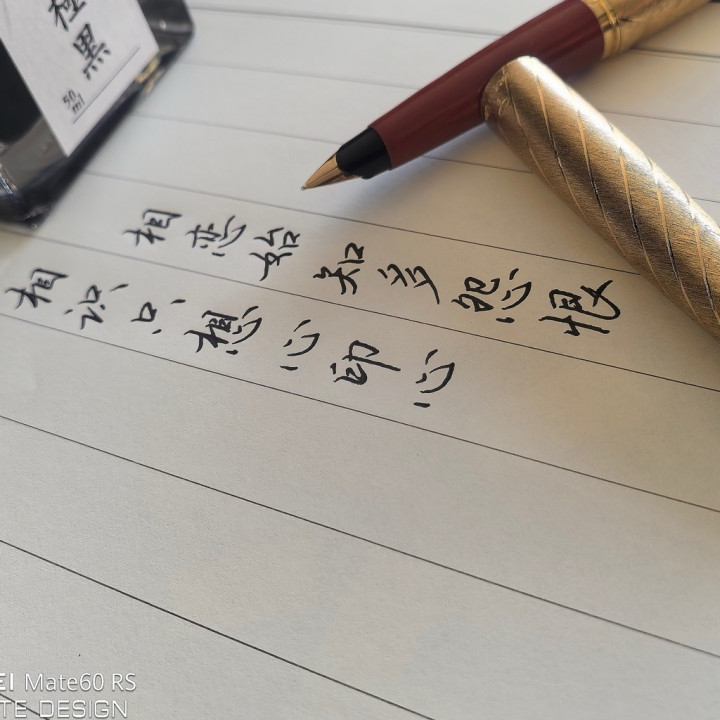 極黑
50 ml
相恋始知多怨恨
相识只想心印心
EI Mate60 RS
TE DESIGN